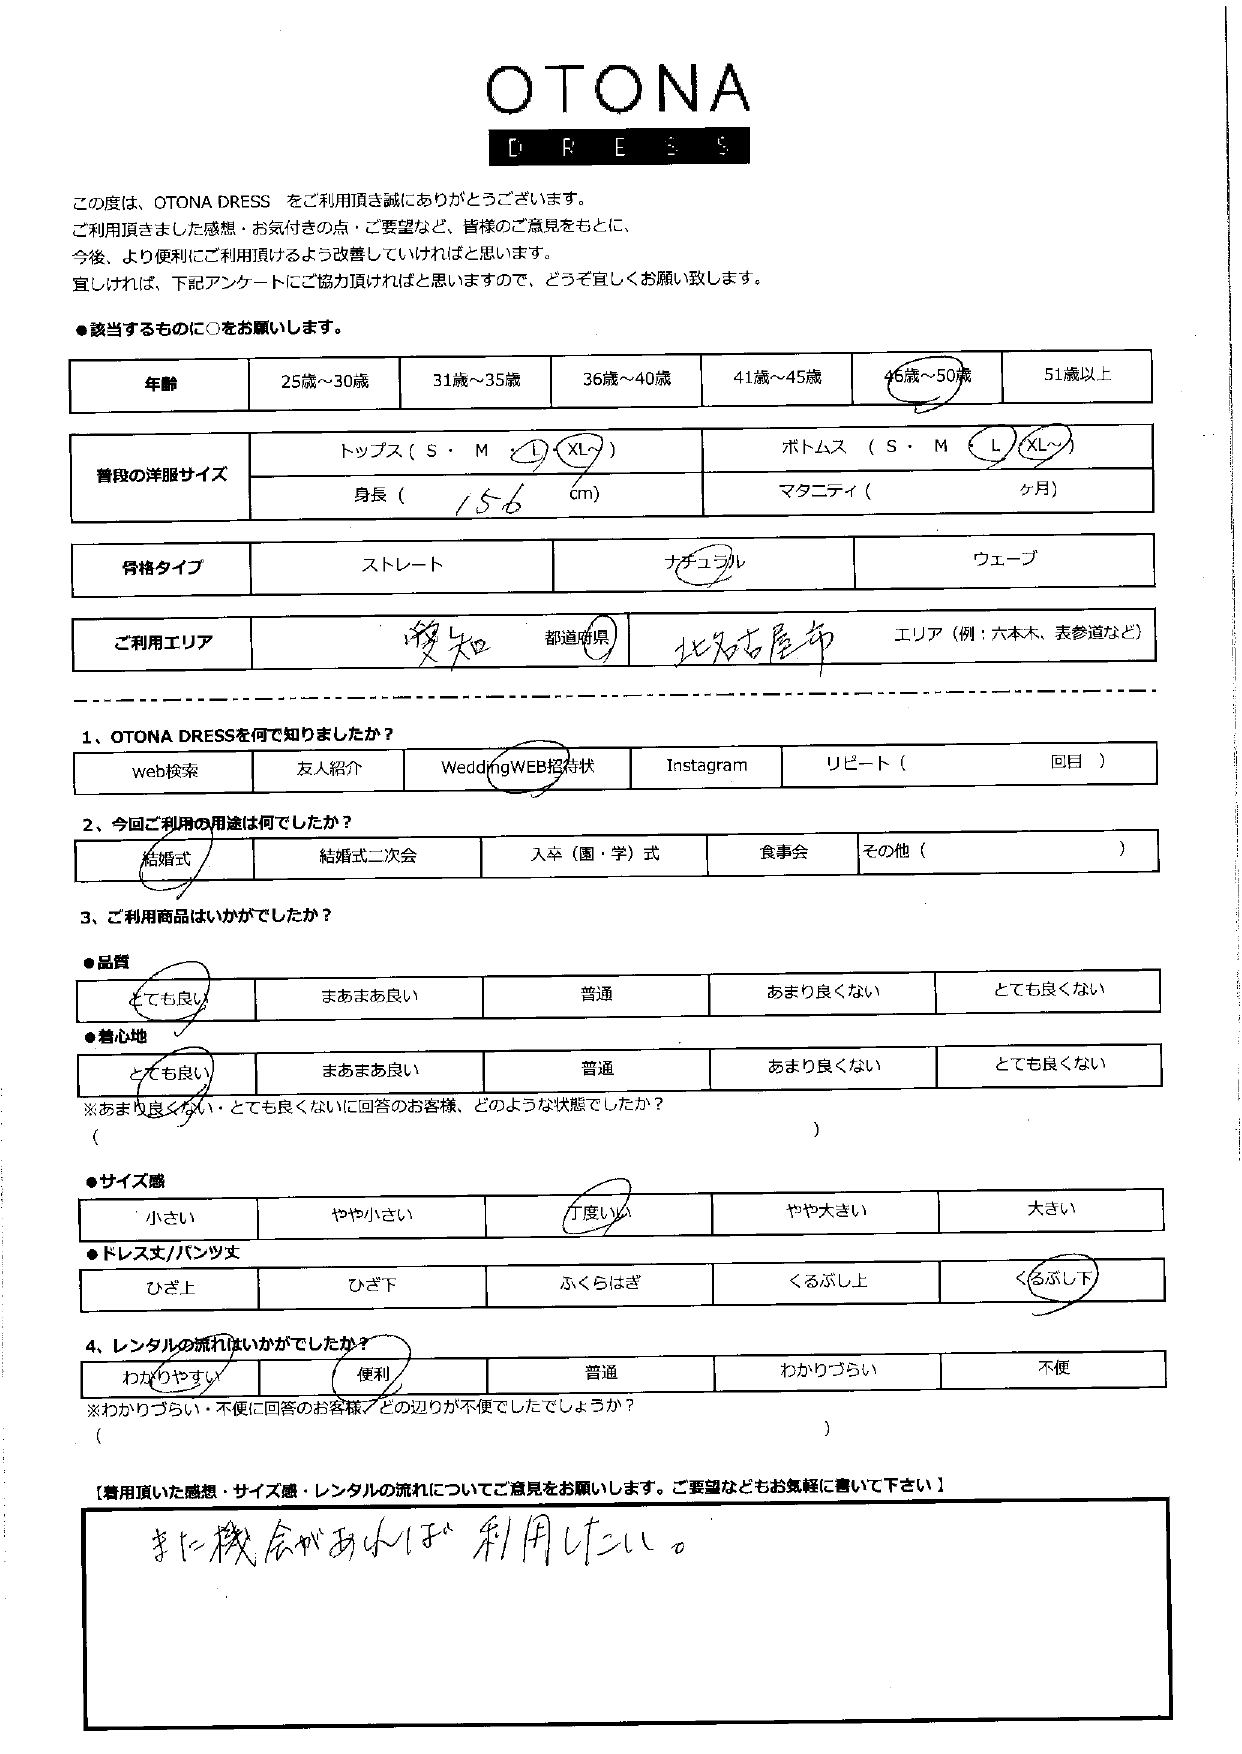 OTONA
DRESS
この度は、OTONA DRESS をご利用頂き誠にありがとうございます。
ご利用頂きました感想・お気付きの点・ご要望など、皆様のご意見をもとに、
今後、より便利にご利用頂けるよう改善していければと思います。
宜しければ、下記アンケートにご協力頂ければと思いますので、どうぞ宜しくお願い致します。
●該当するものに○をお願いします。
年齢 25歳～30歳 31歳～35歳 36歳～40歳 41歳～45歳 46歳～50歳 51歳以上
普段の洋服サイズ トップス ( S ・ M ・ L ・ XL～ ) ボトムス ( S ・ M ・ L ・ XL～ )
身長 ( 156 cm) マタニティ ( ヶ月)
骨格タイプ ストレート ナチュラル ウェーブ
ご利用エリア 愛知 都道府県 北名古屋市 エリア（例：六本木、表参道など）
1、OTONA DRESSを何で知りましたか？
web検索 友人紹介 WeddingWEB招待状 Instagram リピート ( 回目 )
2、今回ご利用の用途は何でしたか？
結婚式 結婚式二次会 入卒（園・学）式 食事会 その他 ( )
3、ご利用商品はいかがでしたか？
●品質
とても良い まあまあ良い 普通 あまり良くない とても良くない
●着心地
とても良い まあまあ良い 普通 あまり良くない とても良くない
※あまり良くない・とても良くないに回答のお客様、どのような状態でしたか？
( )
●サイズ感
小さい やや小さい 丁度いい やや大きい 大きい
●ドレス丈/パンツ丈
ひざ上 ひざ下 ふくらはぎ くるぶし上 くるぶし下
4、レンタルの流れはいかがでしたか？
わかりやすい 便利 普通 わかりづらい 不便
※わかりづらい・不便に回答のお客様、どの辺りが不便でしたでしょうか？
( )
【着用頂いた感想・サイズ感・レンタルの流れについてご意見をお願いします。ご要望などもお気軽に書いて下さい】
また機会があれば利用したい。